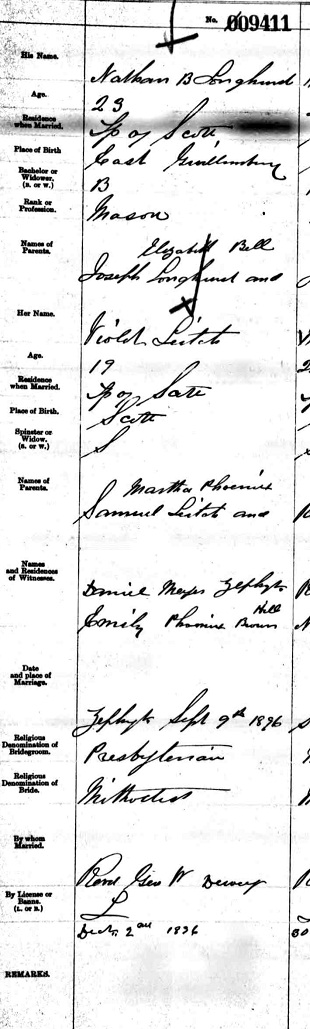 No. 009411
His Name.
Nathan B Longhurst
Age.
23
Residence
when Married.
Tp of Scott
Place of Birth
East Gwillimbury
Bachelor or
Widower.
(B. or W.)
B
Rank or
Profession.
Mason
Names of
Parents.
Elizabeth Bell
Joseph Longhurst and
Her Name.
Violet Leitch
Age.
19
Residence
when Married.
Tp of
Place of Birth.
Scott
Spinster or
Widow.
(S. or W.)
S
Names of
Parents.
Martha Phoenix
Samuel Leitch and
Names
and Residences
of Witnesses.
Daniel Meyers Zephyr
Hill
Emily Phoenix Brown
Date
and place of
Marriage.
Zephyr Sept 9th 1896
Religious
Denomination of
Bridegroom.
Presbyterian
Religious
Denomination of
Bride.
Methodist
By whom
Married.
Revd Geo W Dewey
By License or
Banns.
(L. or B.)
L
2nd 1896
30
REMARKS.